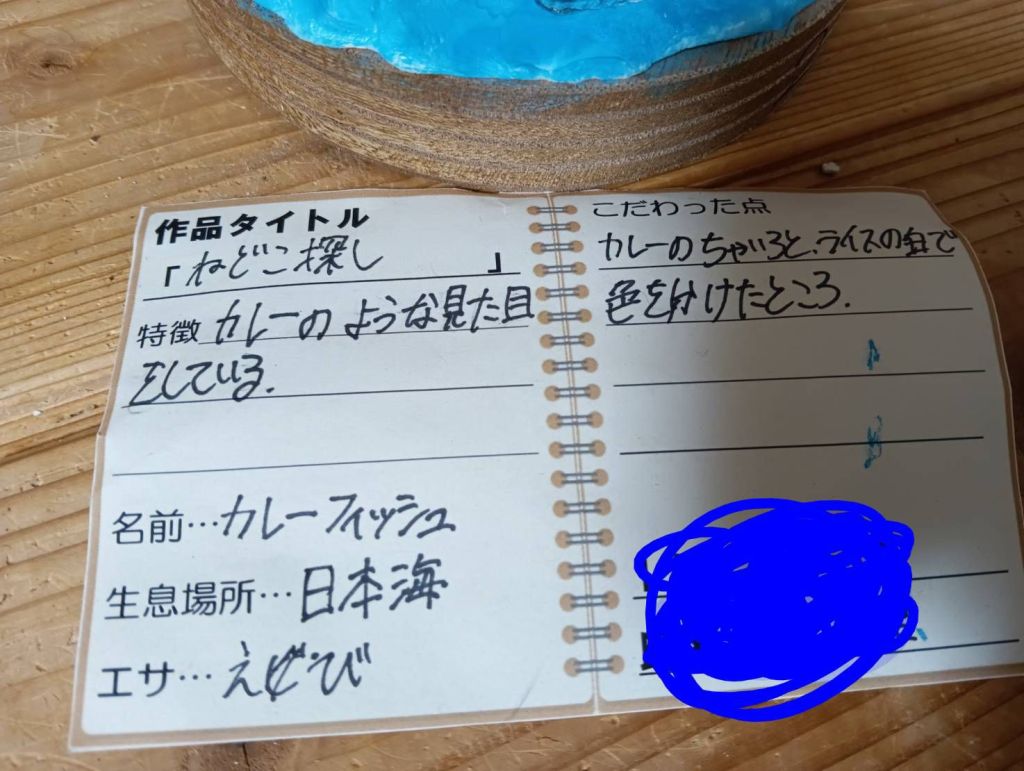 作品タイトル
「ねどこ探し」
特徴 カレーのような見た目
をしている.
名前…カレーフィッシュ
生息場所…日本海
エサ…えび
こだわった点
カレーのちゃいろと、ライスの白で
色を分けたところ.